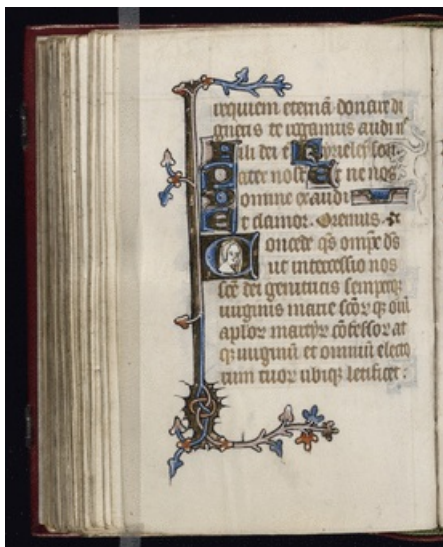 requiem eternā donare di
gneris te rogamus audi n
Fili dei t̄ Kyrieleyson
Pater nost̄ Et ne nos
Domine exaudi
Et clamor. Oremus.
Concede qs omp̄e d̄s
ut intercessio nos
sc̄e dei genitricis semperq̄
virginis marie sc̄oꝝ q̄ om̄
aploꝝ martyꝝ cōfessoꝝ at
q̄ virginū et omniū electo
rum tuoꝝ ubiq̄ letificet: